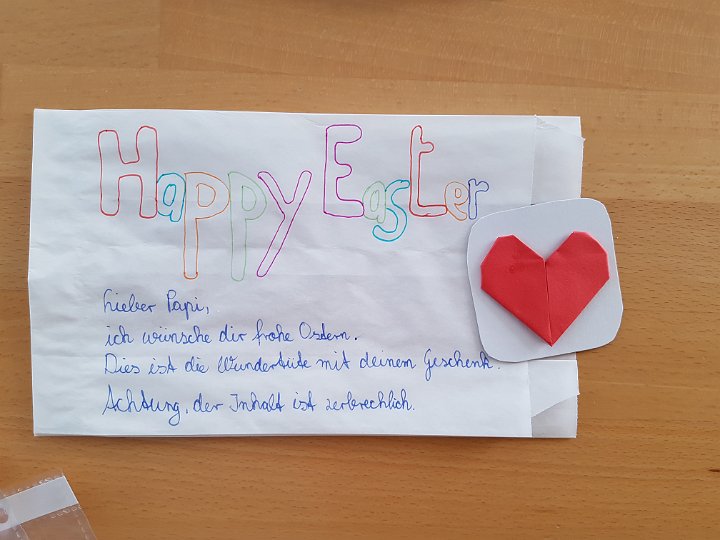 Happy Easter
Lieber Papi,
ich wünsche dir frohe Ostern.
Dies ist die Wundertüte mit deinem Geschenk.
Achtung, der Inhalt ist zerbrechlich.